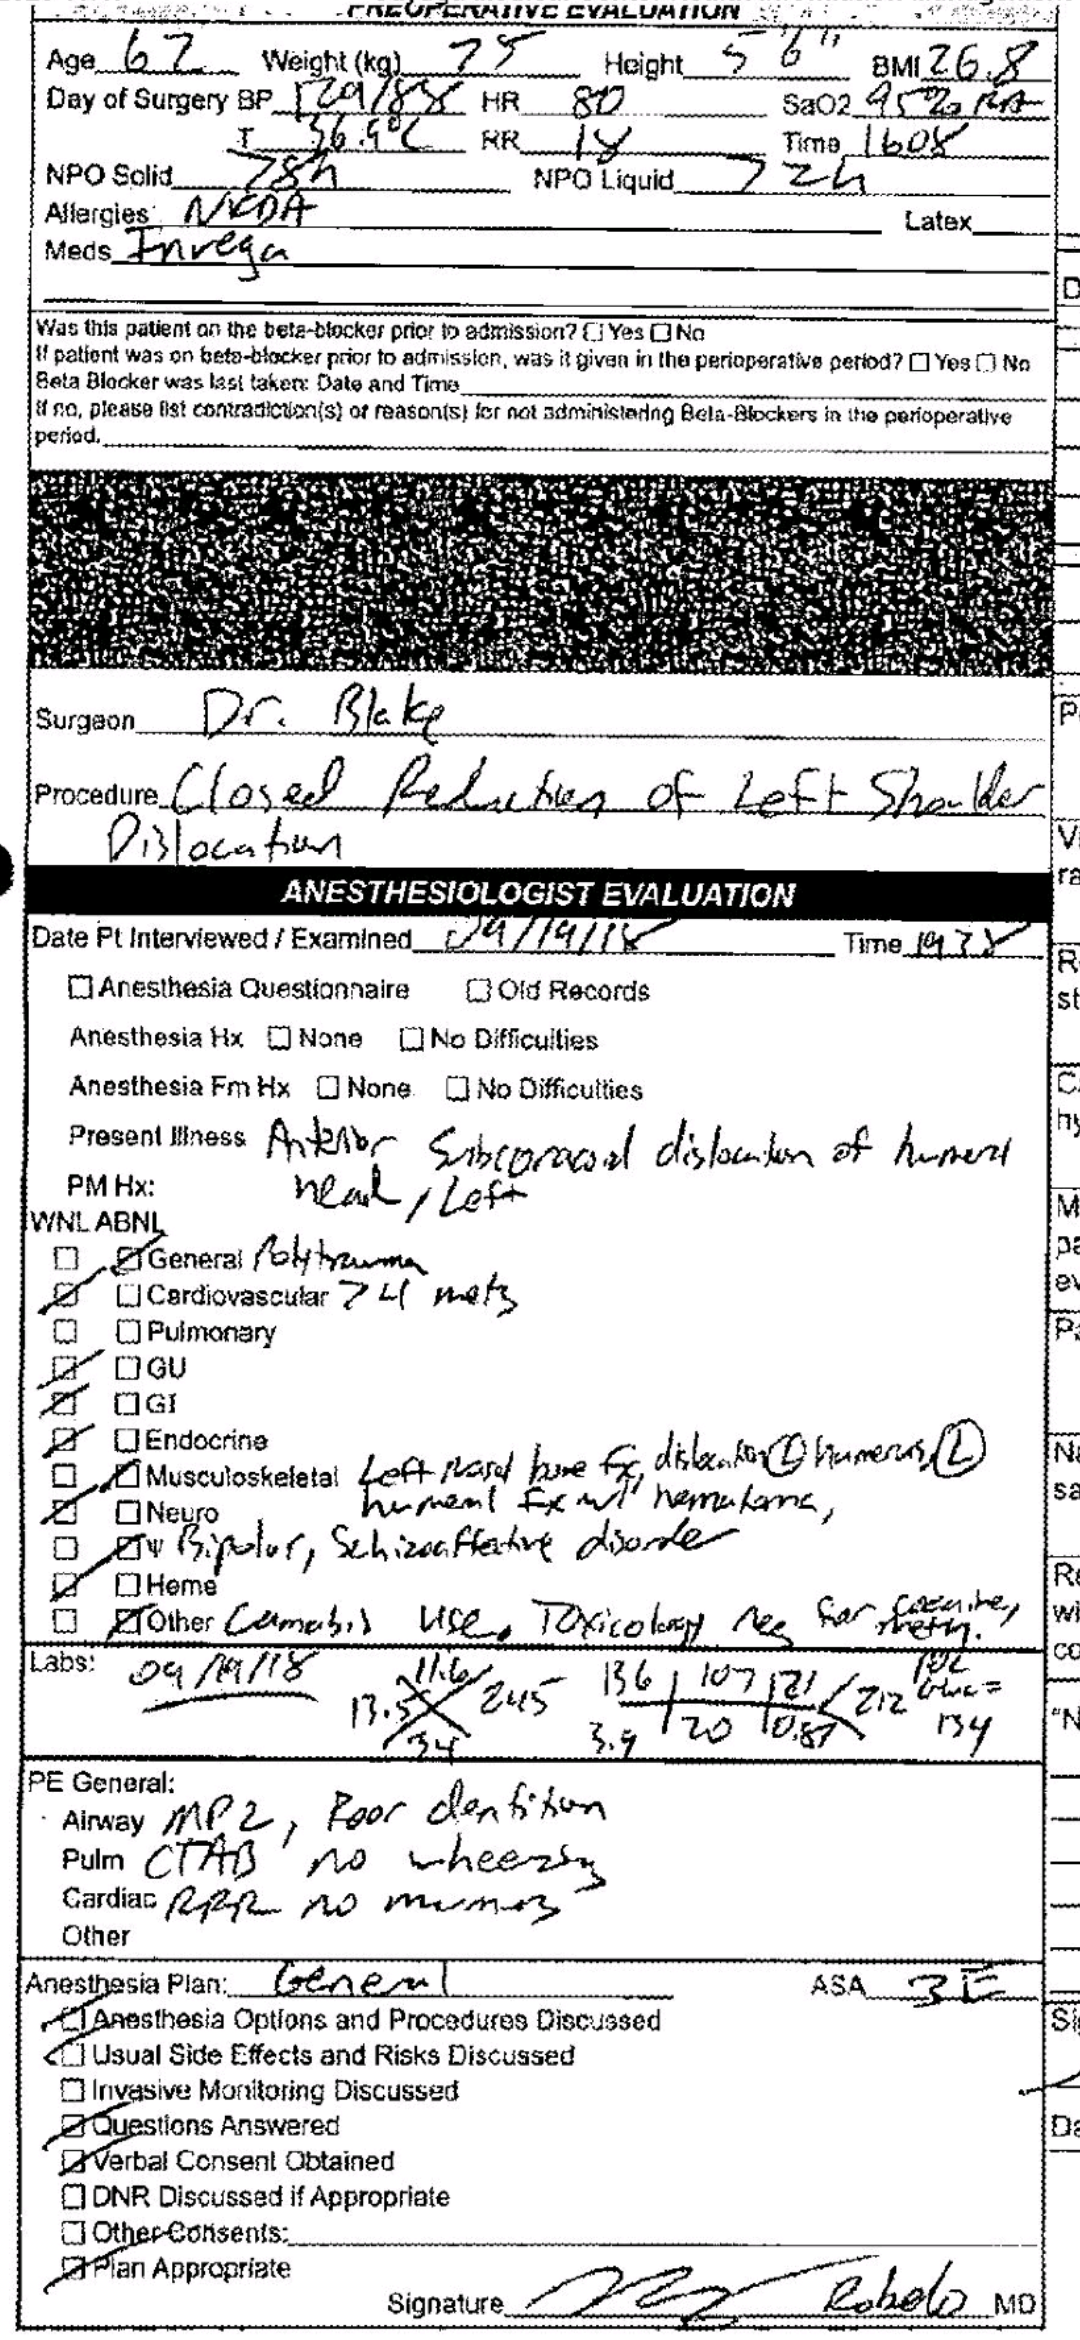 PREOPERATIVE EVALUATION
Age 62 Weight (kg) 75 Height 5'6" BMI 26.8
Day of Surgery BP 129/88 HR 80 SaO2 95% RA
T 36.9°C RR 18 Time 1608
NPO Solid >8h NPO Liquid >2h
Allergies: NKDA Latex
Meds Invega
Was this patient on the beta-blocker prior to admission? ☐ Yes ☐ No
If patient was on beta-blocker prior to admission, was it given in the perioperative period? ☐ Yes ☐ No
Beta Blocker was last taken: Date and Time
If no, please list contradiction(s) or reason(s) for not administering Beta-Blockers in the perioperative
period.
Surgeon Dr. Blake
Procedure Closed Reduction of Left Shoulder
Dislocation
ANESTHESIOLOGIST EVALUATION
Date Pt Interviewed / Examined 09/19/18 Time 1938
☐ Anesthesia Questionnaire ☐ Old Records
Anesthesia Hx ☐ None ☐ No Difficulties
Anesthesia Fm Hx ☐ None ☐ No Difficulties
Present Illness Anterior Subcoracoid dislocation of humeral
PM Hx: head, Left
WNL ABNL
☐ ☑ General Polytrauma
☑ ☐ Cardiovascular >4 mets
☐ ☐ Pulmonary
☑ ☐ GU
☑ ☐ GI
☑ ☐ Endocrine
☐ ☑ Musculoskeletal Left nasal bone fx, dislocation Ⓛ humerus, Ⓛ
☑ ☐ Neuro humeral fx w/ hematoma,
☐ ☑ Ψ Bipolar, Schizoaffective disorder
☑ ☐ Heme
☐ ☑ Other Cannabis use. Toxicology neg for cocaine, meth.
Labs: 09/19/18 13.5 11.6 34 245 136 107 21 3.9 20 0.87 212 POC Gluc = 134
PE General:
Airway MP2, Poor dentition
Pulm CTAB no wheezing
Cardiac RRR no murmurs
Other
Anesthesia Plan: General ASA 3E
☑ Anesthesia Options and Procedures Discussed
☑ Usual Side Effects and Risks Discussed
☐ Invasive Monitoring Discussed
☑ Questions Answered
☑ Verbal Consent Obtained
☐ DNR Discussed if Appropriate
☐ Other Consents:
☑ Plan Appropriate
Signature Robelo MD